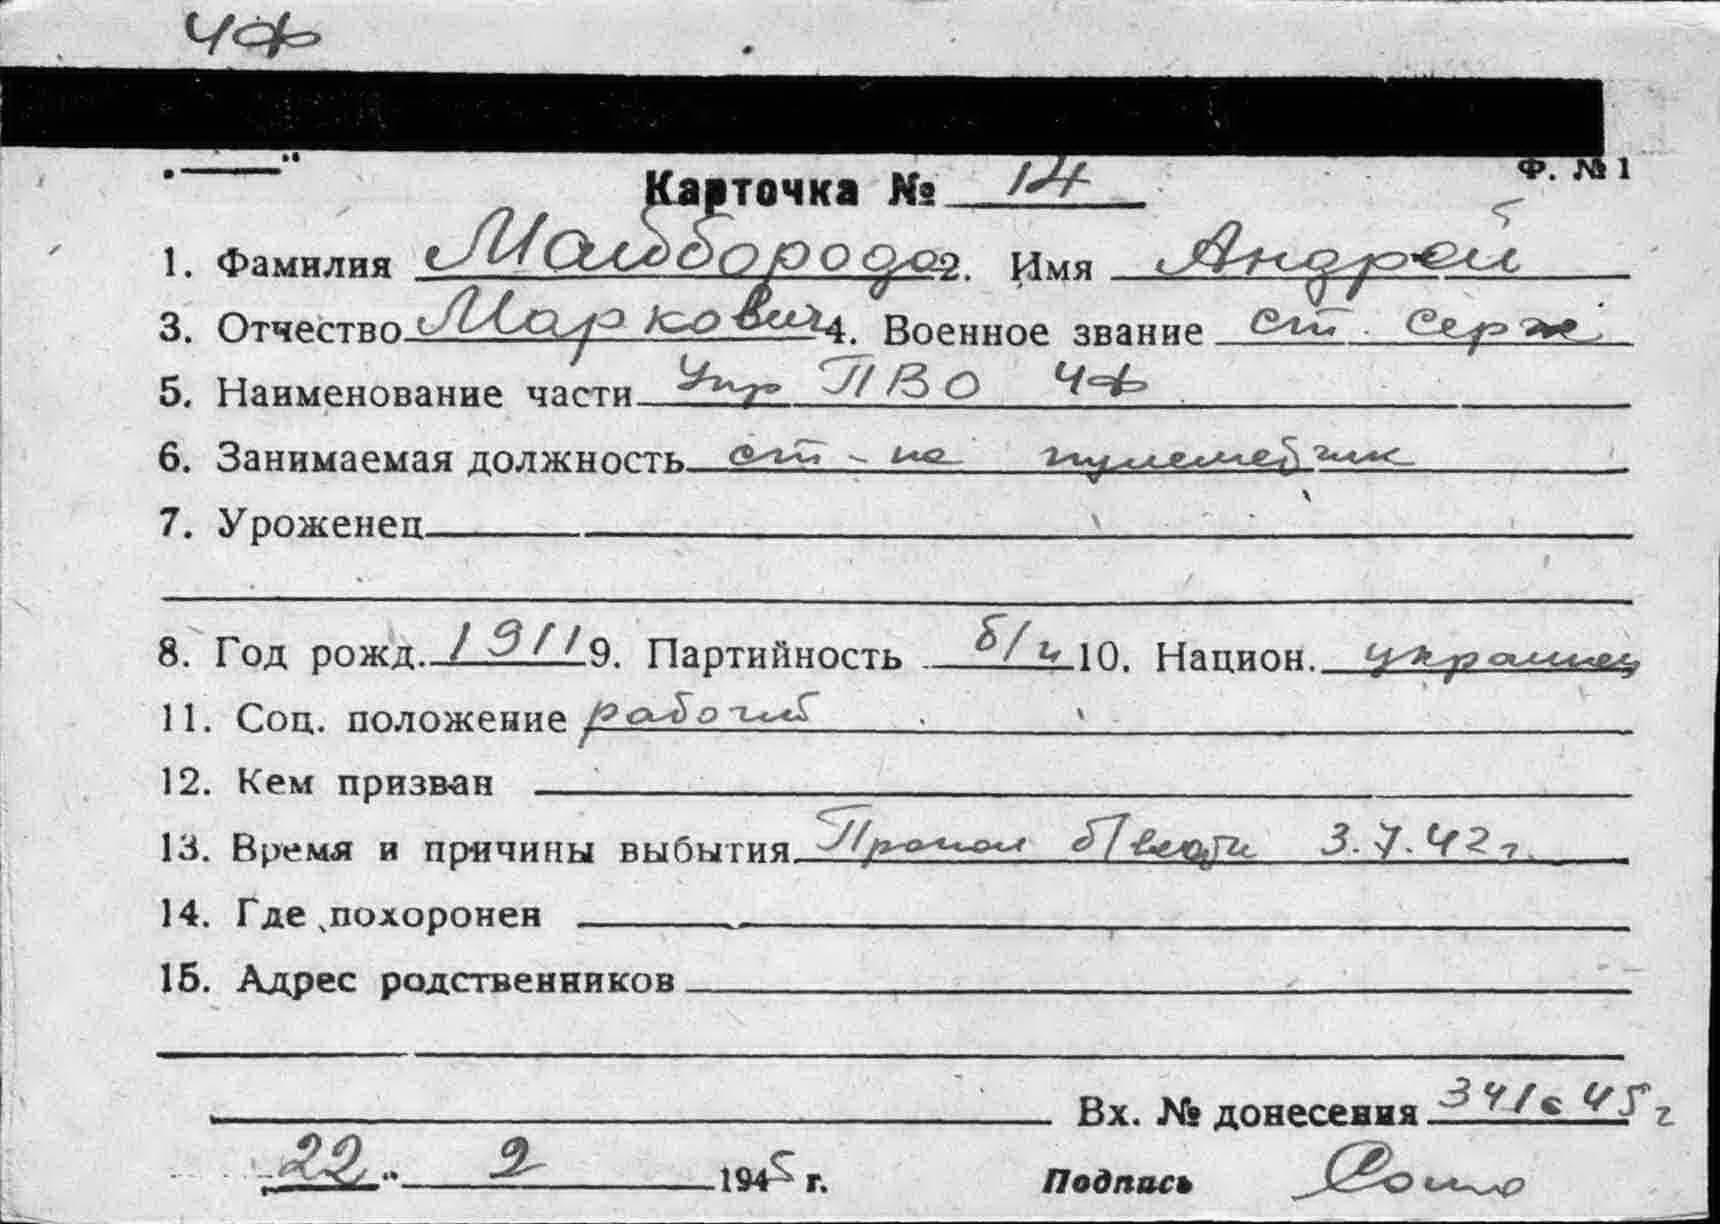 ЧФ
Ф. № 1
Карточка № 14
1. Фамилия Майборода 2. Имя Андрей
3. Отчество Маркович 4. Военное звание ст. серж
5. Наименование части Упр ПВО ЧФ
6. Занимаемая должность ст-на пулеметчик
7. Уроженец
8. Год рожд. 1911 9. Партийность б/п 10. Национ. украинец
11. Соц. положение рабочий
12. Кем призван
13. Время и причины выбытия Пропал б/вести 3.7.42 г.
14. Где похоронен
15. Адрес родственников
Вх. № донесения 341с 45 г
22 " 2 1945 г. Подпись